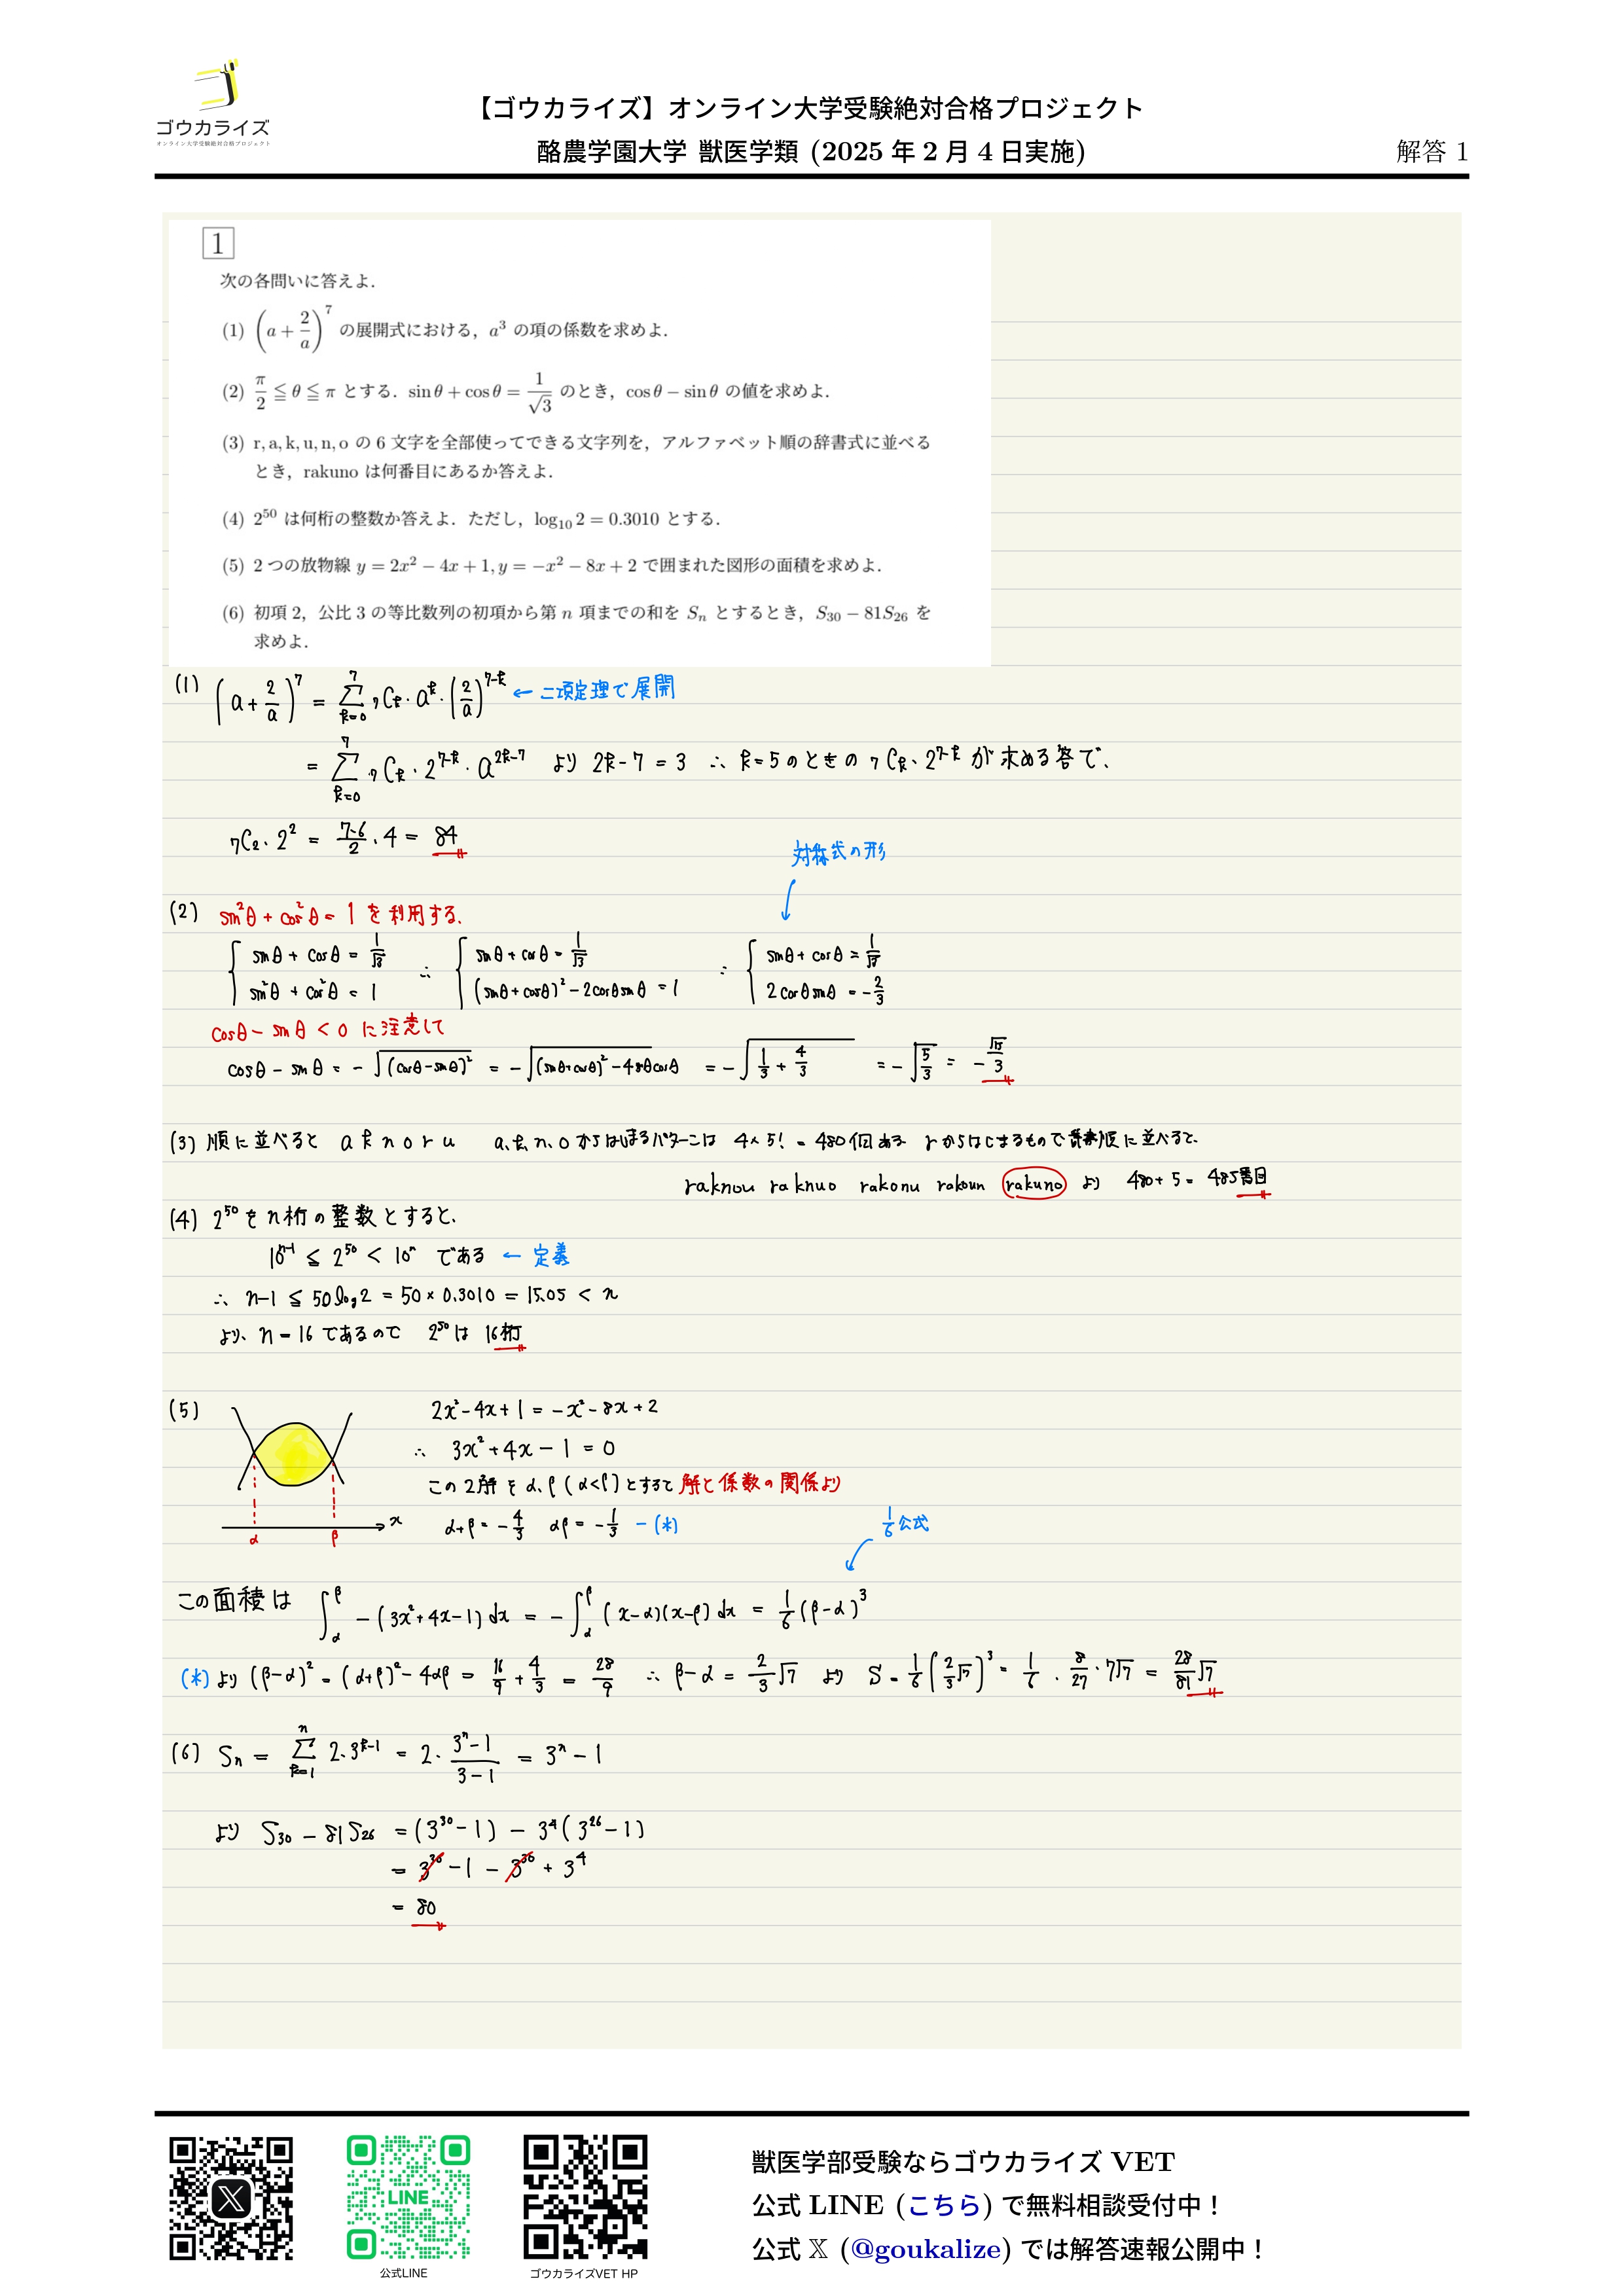 ゴウカライズ
オンライン大学受験絶対合格プロジェクト
【ゴウカライズ】オンライン大学受験絶対合格プロジェクト
酪農学園大学 獣医学類 (2025 年 2 月 4 日実施)
解答 1
1
次の各問いに答えよ.
(1) (a + 2/a)^7 の展開式における, a^3 の項の係数を求めよ.
(2) π/2 ≦ θ ≦ π とする. sin θ + cos θ = 1/√3 のとき, cos θ − sin θ の値を求めよ.
(3) r, a, k, u, n, o の 6 文字を全部使ってできる文字列を, アルファベット順の辞書式に並べる
とき, rakuno は何番目にあるか答えよ.
(4) 2^50 は何桁の整数か答えよ. ただし, log₁₀ 2 = 0.3010 とする.
(5) 2 つの放物線 y = 2x² − 4x + 1, y = −x² − 8x + 2 で囲まれた図形の面積を求めよ.
(6) 初項 2, 公比 3 の等比数列の初項から第 n 項までの和を Sₙ とするとき, S₃₀ − 81S₂₆ を
求めよ.
(1) (a + 2/a)^7 = Σ_{k=0}^{7} ₇Cₖ · a^k · (2/a)^{7-k} ← 二項定理で展開
= Σ_{k=0}^{7} ₇Cₖ · 2^{7-k} · a^{2k-7} より 2k − 7 = 3 ∴ k = 5 のときの ₇Cₖ · 2^{7-k} が求める答で、
₇C₂ · 2² = 7·6/2 · 4 = 84
対称式の形
(2) sin²θ + cos²θ = 1 を利用する.
{ sinθ + cosθ = 1/√3 ∴ { sinθ + cosθ = 1/√3 ∴ { sinθ + cosθ = 1/√3
sin²θ + cos²θ = 1 (sinθ + cosθ)² − 2cosθsinθ = 1 2cosθsinθ = −2/3
cosθ − sinθ < 0 に注意して
cosθ − sinθ = −√(cosθ−sinθ)² = −√(sinθ+cosθ)² − 4sinθcosθ = −√(1/3 + 4/3) = −√(5/3) = −√15/3
(3) 順に並べると a k n o r u a, k, n, o からはじまるパターンは 4×5! = 480個ある rからはじまるもので辞書順に並べると、
raknou raknuo rakonu rakoun rakuno より 480+5 = 485番目
(4) 2^50 を n桁の整数とすると、
10^{n-1} ≦ 2^50 < 10^n である ← 定義
∴ n−1 ≦ 50log2 = 50 × 0.3010 = 15.05 < n
より、n = 16 であるので 2^50 は 16桁
(5) 2x² − 4x + 1 = −x² − 8x + 2
∴ 3x² + 4x − 1 = 0
この2解を α, β (α<β) とすると 解と係数の関係より
α+β = −4/3 αβ = −1/3 − (*)
x
α β
1/6公式
この面積は ∫_α^β −(3x²+4x−1) dx = −∫_α^β (x−α)(x−β) dx = 1/6 (β−α)³
(*)より (β−α)² = (α+β)² − 4αβ = 16/9 + 4/3 = 28/9 ∴ β−α = 2/3 √7 より S = 1/6 (2/3 √7)³ = 1/6 · 8/27 · 7√7 = 28/81 √7
(6) Sₙ = Σ_{k=1}^{n} 2·3^{k-1} = 2 · (3^n − 1)/(3 − 1) = 3^n − 1
より S₃₀ − 81S₂₆ = (3^30 − 1) − 3^4 (3^26 − 1)
= 3^30 − 1 − 3^30 + 3^4
= 80
LINE
公式LINE
ゴウカライズVET HP
獣医学部受験ならゴウカライズ VET
公式 LINE (こちら) で無料相談受付中！
公式 𝕏 (@goukalize) では解答速報公開中！